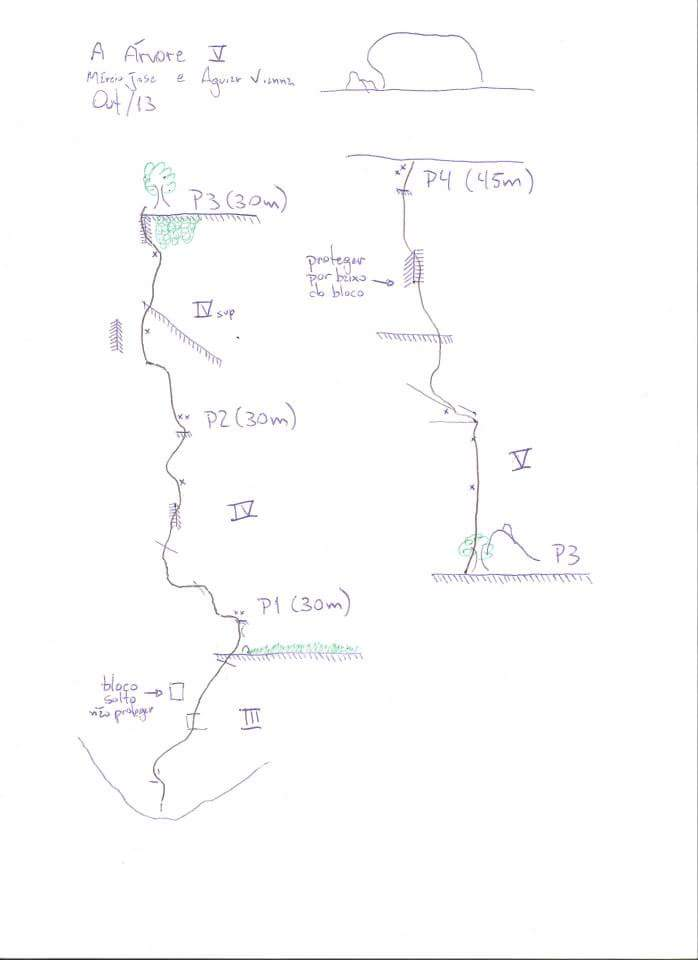 A Árvore V
José e Aguiar Vianna
Out/13
P3 (30m)
IV sup
P2 (30m)
IV
P1 (30m)
bloco
solto
não proteger
III
P4 (45m)
proteger
por baixo
do bloco
V
P3